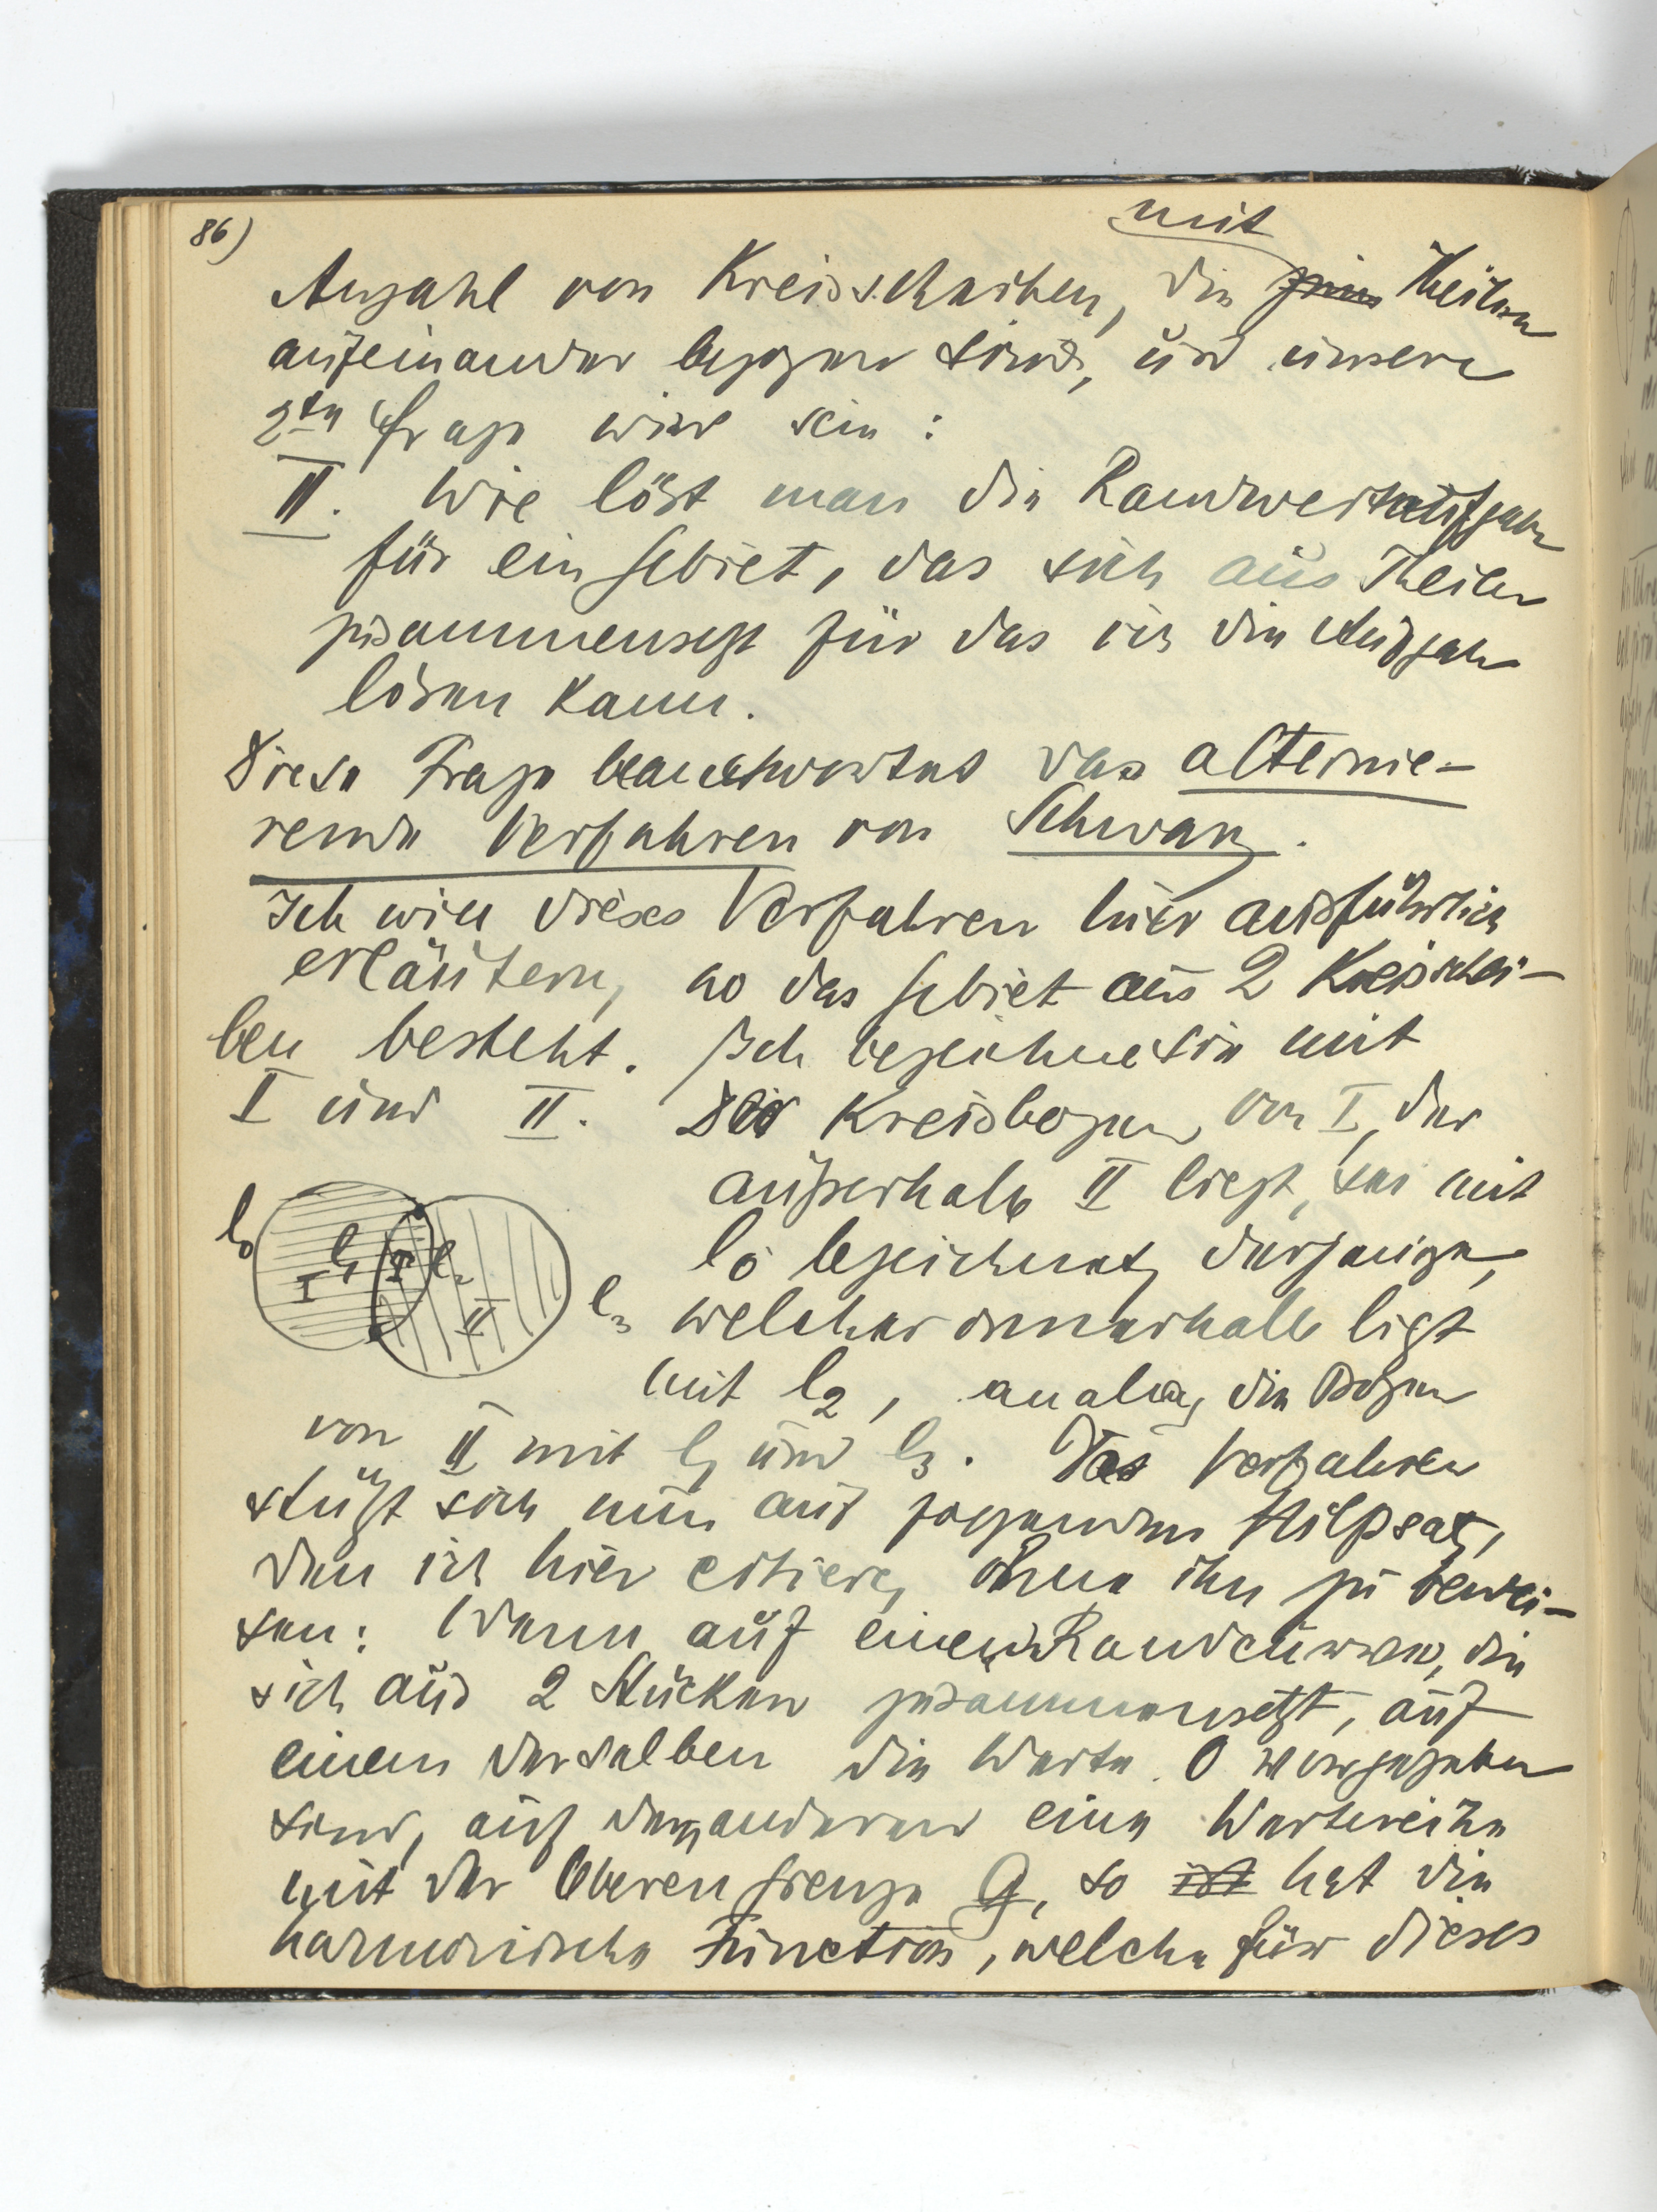 86)
mit
Anzahl von Kreisscheiben, die Theilen
aufeinander bezogen sind, und unsere
2te Frage wird sein:
II. Wie löst man die Randwertaufgabe
für ein Gebiet, das sich aus Theilen
zusammensetzt für das ich die Aufgabe
lösen kann.
Diese Frage beantwortet das alternie-
rende Verfahren von Schwarz.
Ich will dieses Verfahren hier ausführlich
erläutern, wo das Gebiet aus 2 Kreisschei-
ben besteht. Ich bezeichne sie mit
I und II. Der Kreisbogen von I, der
außerhalb II liegt, sei mit
l0 bezeichnet, derjenige,
welcher innerhalb liegt
mit l2, analog die Bogen
l0 l1 l2 l3
I II
von II mit l1 und l3. Das Verfahren
stützt sich nun auf folgenden Hilfsatz,
den ich hier citiere, ohne ihn zu bewei-
sen: Wenn auf einer Randcurve, die
sich aus 2 Stücken zusammensetzt, auf
einem derselben die Werte 0 vorgegeben
sind, auf dem anderen eine Wertreihe
mit der Oberen Grenze G, so ist hat die
harmonische Function, welche für dieses